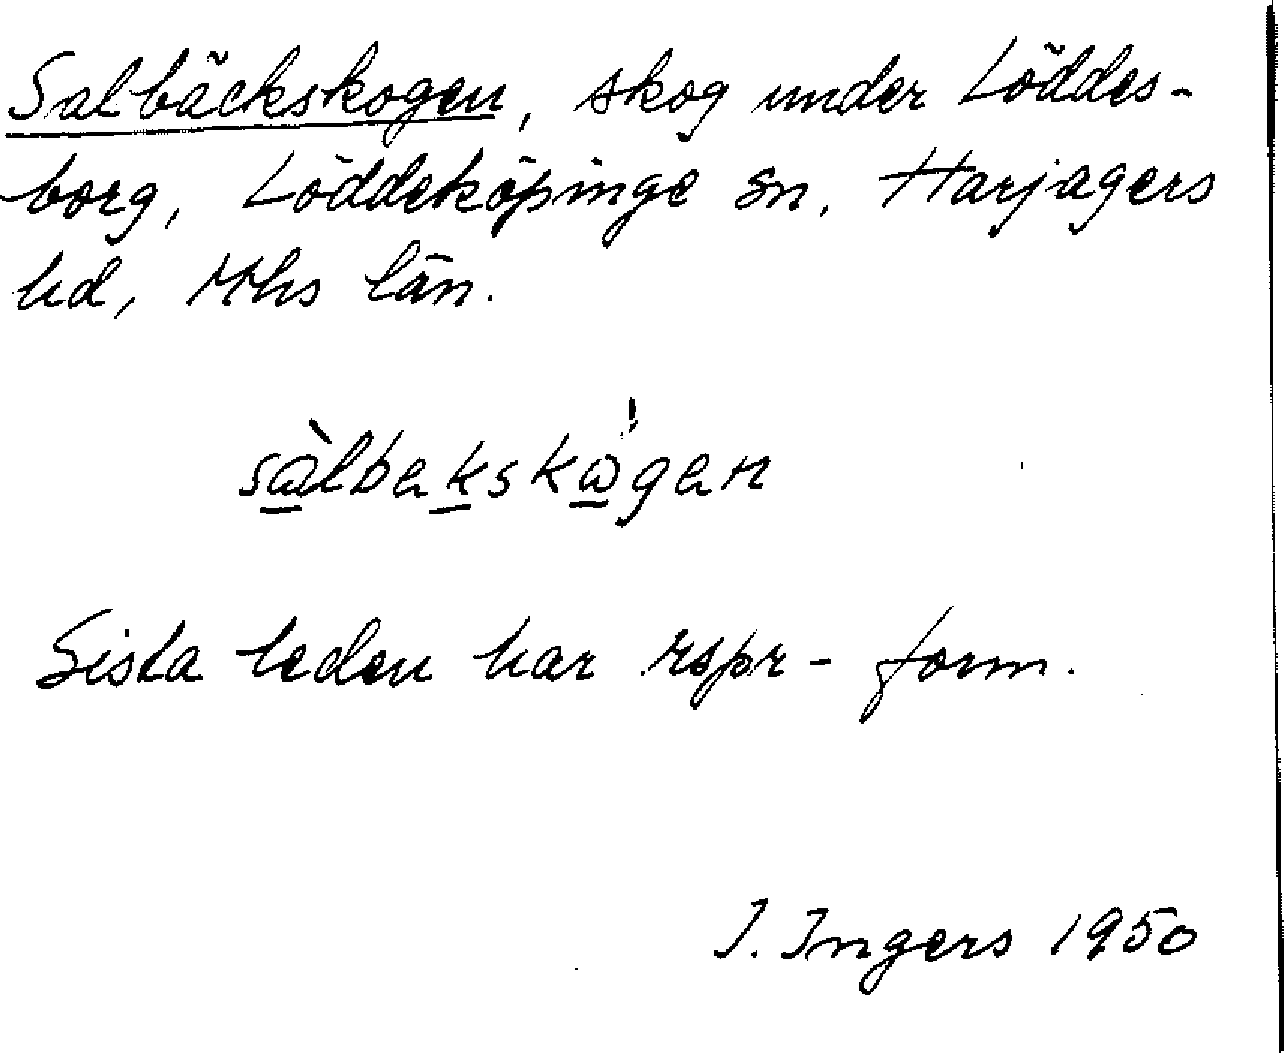 Salbäckskogen, skog under Löddes-
borg, Löddeköpinge sn, Harjagers
hd, Mhs län.
sàlbakskågen
Sista leden har rspr-form.
I. Ingers 1950